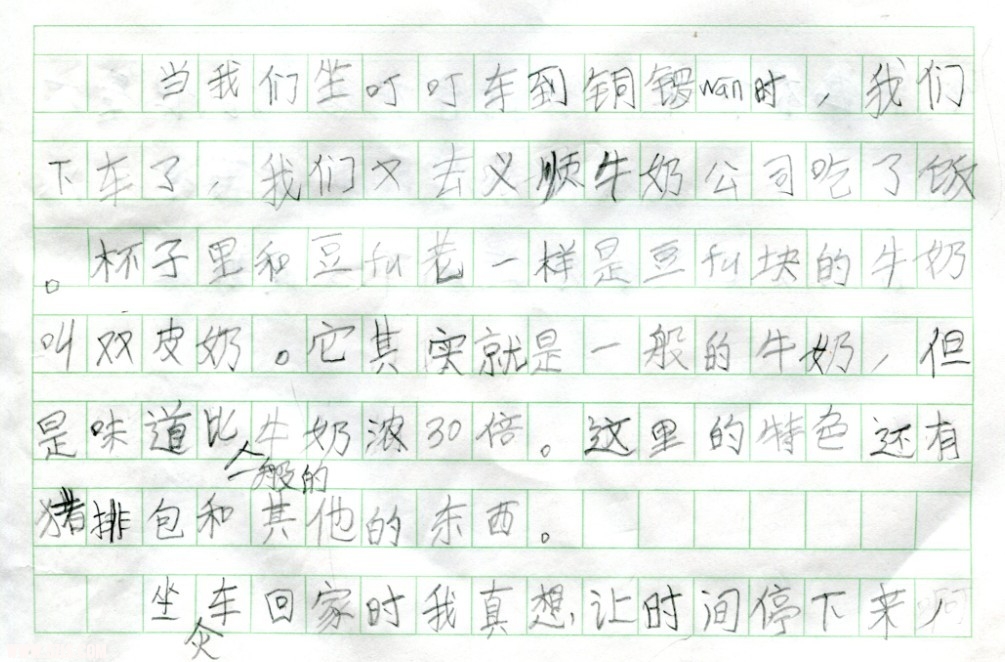 当我们坐叮叮车到铜锣wan时，我们
下车了，我们又去义顺牛奶公司吃了饭
。杯子里和豆fu花一样是豆fu块的牛奶
叫双皮奶。它其实就是一般的牛奶，但
是味道比一般的牛奶浓30倍。这里的特色还有
猪排包和其他的东西。
坐车回家时我真想让时间停下来，